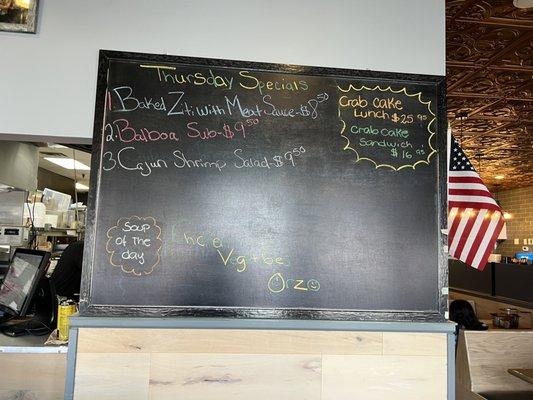 Thursday Specials
1. Baked Ziti with Meat Sauce - $8.50
2. Balboa Sub - $9.50
3. Cajun Shrimp Salad - $9.50
Crab Cake
Lunch $25.95
Crab Cake
Sandwich
$16.95
Soup
of the
day
Orzo